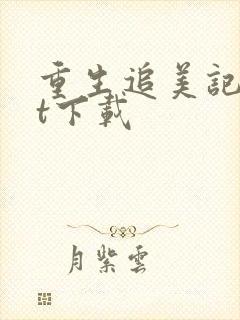 重生追美記
t下載
月紫雲